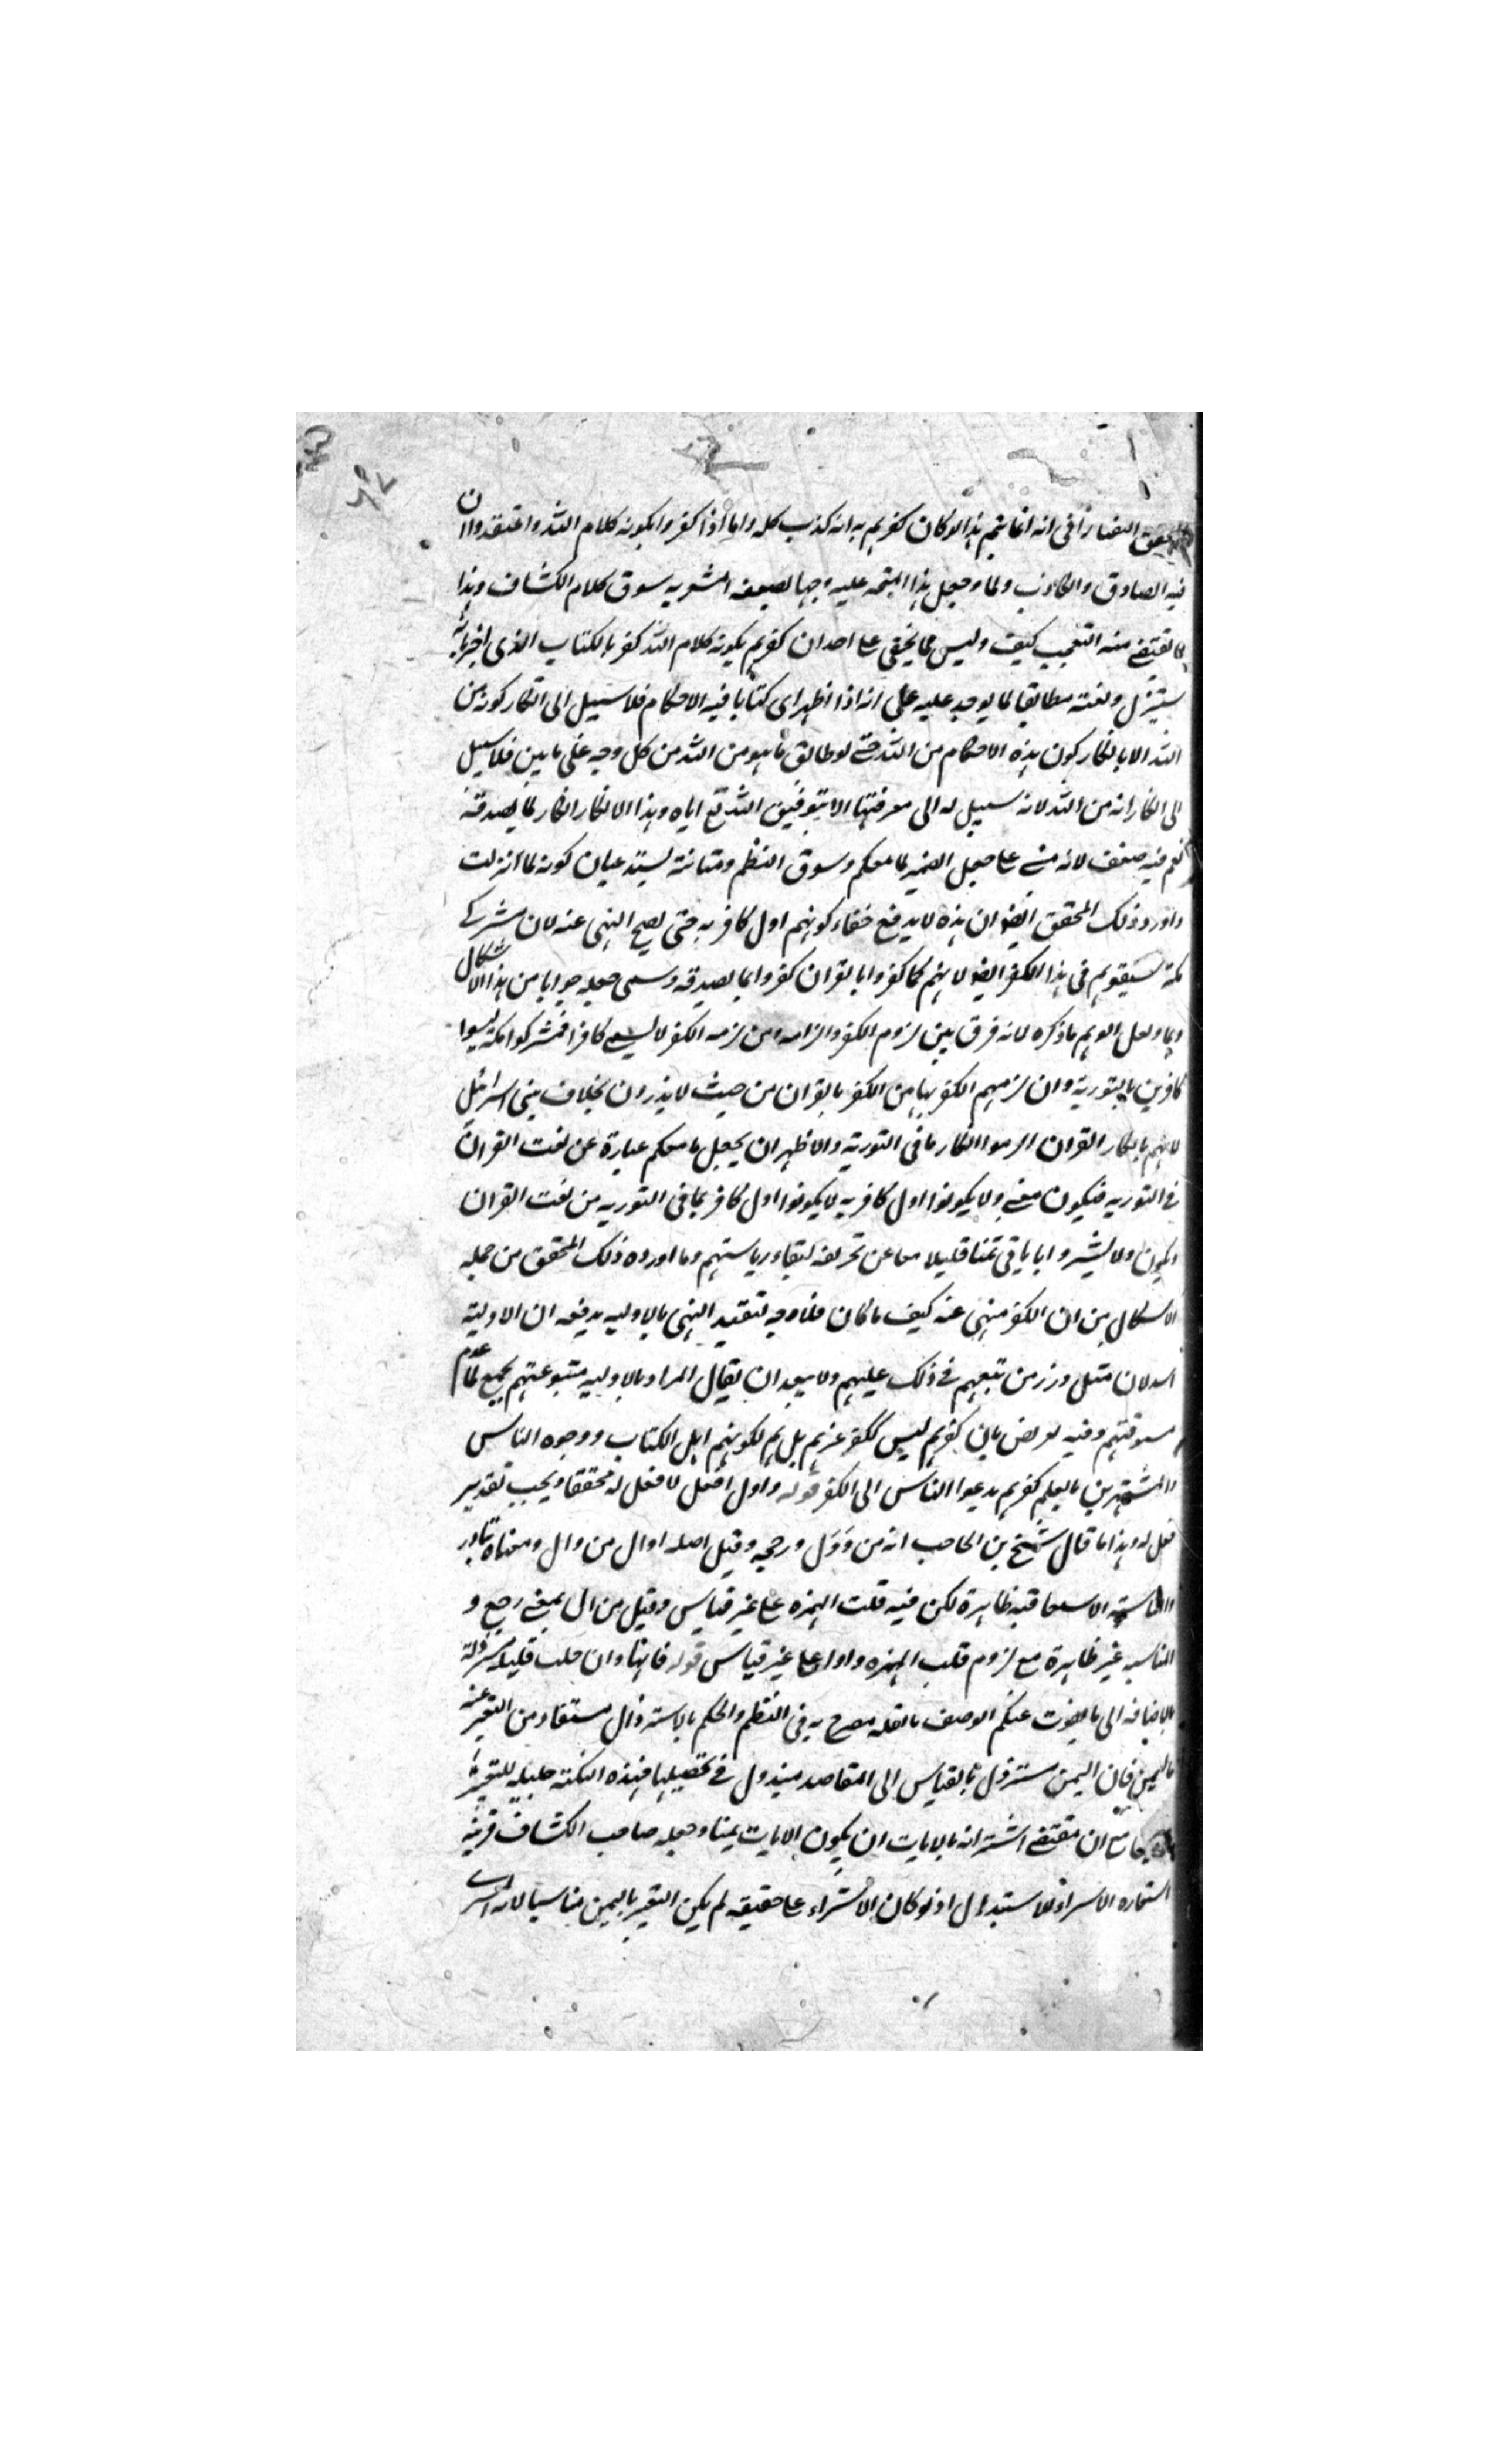 المحقق التفتازاني انه انما يتم هذا لو كان كفرهم به انه كذب كله واما اذا كفروا بكونه كلام الله واعتقدوا ان
فيه الصادق والكاذب ولما وجعل هذا المتجه عليه وجها لضعفه سوق كلام الكشاف وهذا
مما يقتضى منه التعجب كيف وليس مما يخفى على احد ان كفرهم بكونه كلام الله كفر بالكتاب الذى اخبر بانه
سينزل ونعته مطابقا لما يوجد عليه على انه اذا اظهر اى كتابا فيه الاحكام فلا سبيل الى انكار كونه من
الله الا بانكار كون هذه الاحكام من الله حتى لو طابق ما هو من الله من كل وجه على ما بين فلا سبيل
الى انكار انه من الله لانه سبيل له الى معرفتها الا بتوفيق الله تع اياه وهذا الانكار انكار لما يصدقه
نعم فيه ضعف لانه مبنى على جعل الضمير لما معكم وسوق النظم ومتانته يستدعيان كونه لما انزلت
واورد ذلك المحقق ايضا ان هذه لا يدفع خفاء كونهم اول كافر به حتى يصح النهى عنه لان مشركى
مكة سبقوهم فى هذا الكفر ايضا لانهم كما كفروا بالقران كفروا بما يصدقه وسمى جعله جوابا من هذا الاشكال
وهما ولعل الوهم ما ذكره لانه فرق بين لزوم الكفر والزامه ومن لزمه الكفر لا يسمى كافرا فمشركوا مكة ليسوا
كافرين بالتورية وان لزمهم الكفر بها من الكفر بالقران من حيث لا يدرون بخلاف بنى اسرائيل
لانهم بانكار القران الزموا انكار ما فى التورية والاظهر ان يجعل ما معكم عبارة عن نعت القران
فى التوريه فيكون معنى ولا يكونوا اول كافر به لا يكونوا اول كافر بما فى التوريه من نعت القران
ويكون ولا يشتروا باياتى ثمنا قليلا معا عن تحريفه لبقاء رياستهم وما اورده ذلك المحقق من جمله
الاشكال من ان الكفر منهى عنه كيف ما كان فلا وجه لتقييد النهى بالاوليه يدفعه ان الاولية
اسد لان مثل وزر من تبعهم فى ذلك عليهم ولا يبعد ان يقال المراد بالاوليه متبوعيتهم لجميع لما عدم
مسبوقيتهم وفيه تعريض بان كفرهم ليس ككفر غيرهم بل هم لكونهم اهل الكتاب ووجوه الناس
والمشتهرين بالعلم كفرهم يدعوا الناس الى الكفر قوله واول افعل لا فعل له محققا ويجب تقدير
فعل له وهذا ما قال شيخ بن الحاجب انه من وَوَل ورجحه وقيل اصله اوال من وال ومعناه تبادر
والمناسبة الاشتقاقيه ظاهرة لكن فيه قلب الهمزه على غير قياس وقيل من ال بمعنى رجع و
المناسبه غير ظاهرة مع لزوم قلب الهمزه واوا على غير قياس قوله فانها وان جلت قليله مسترذلة
بالاضافه الى ما يفوت عنكم الوصف بالقله مصرح به فى النظم والحكم بالاسترذال مستفاد من التعبير عنه
بالثمن فان الثمن مسترذل بالقياس الى المقاصد مبذول فى تحصيلها فهذه النكته جليله للتعبير
مع ان مقتضى اشترائه بالايات ان يكون الايات ثمنا وجعله صاحب الكشاف قرينه
استعاره الاشتراء للاستبدال اذ لو كان الاشتراء على حقيقته لم يكن التعبير بالثمن مناسبا لانه المشترى